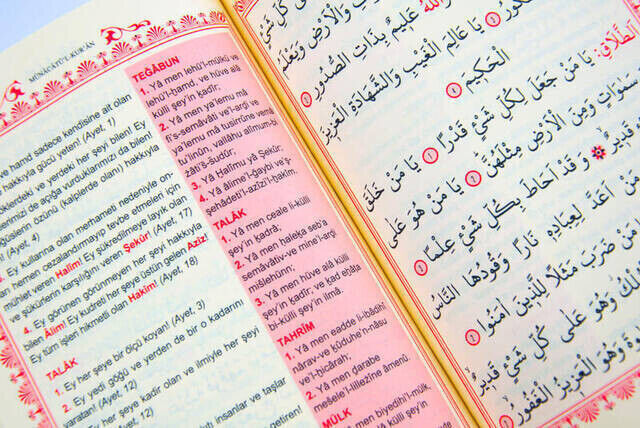 MÜNÂCÂTÜ'L-KUR'ÂN
ve hamd sadece kendisine ait olan
hakkıyla gücü yeten! (Ayet, 1)
klerdeki ve yerdeki her şeyi bilen! Ey
erimizi de açığa vurduklarımızı da bilen!
öğüslerin özünü (kalplerde olanı) hakkıyla
(Ayet, 4)
3. Ey kullarına olan merhameti nedeniyle on-
hemen cezalandırmayıp tevbe etmeleri için
mühlet veren Halîm! Ey şükredilmeye layık olan
ve şükürlerin karşılığını veren Şekûr! (Ayet, 17)
4. Ey görünen görünmeyen her şeyi hakkıyla
bilen Âlim! Ey kudreti her şeye üstün gelen Azîz!
Ey tüm işleri hikmetli olan Hakîm! (Ayet, 18)
TALÂK
1. Ey her şeye bir ölçü koyan! (Ayet, 3)
2. Ey yedi göğü ve yerden de bir o kadarını
yaratan! (Ayet, 12)
3. Ey her şeye kadir olan ve ilmiyle her şeyi
(Ayet, 12)
insanlar ve taşlar
TEĞÂBUN
1. Yâ men lehü'l-mülkü ve
lehü'l-hamd, ve hüve alâ
külli şey'in kadîr;
2. Yâ men ya'lemu mâ
fi's-semâvâti ve'l-arḍi ve
ya'lemu mâ tusirrûne vemâ
tu'linûn, vallâhu alîmum-bi
ẕâti's-ṣudûr;
3. Yâ Halîmu yâ Şekûr;
4. Yâ âlime'l-ğaybi ve'ş-
şehâdeti'l-azîzi'l-ḥakîm.
TALÂK
1. Yâ men ceale li-külli
şey'in ḳadrâ;
2. Yâ men ḫaleḳa seb'a
semâvâtiv-ve mine'l-arḍi
miślehünn;
3. Yâ men hüve alâ külli
şey'in ḳadîr; ve ḳad eḥâta
bi-külli şey'in ilmâ.
TAHRÎM
1. Yâ men eadde li-ibâdihî
nârav-ve ḳûduhe'n-nâsu
ve'l-ḥicârah;
2. Yâ men ḍarabe
meśelel'l-lilleẕîne âmenû.
MÜLK
1. Yâ men biyedihi'l-mülk,
külli şey'in
كُلِّ شَيْءٍ
وَالْأَرْضِ وَيَعْلَمُ
عَلِيمٌ بِذَاتِ الصُّدُورِ
يَا عَالِمَ الْغَيْبِ وَالشَّهَادَةِ الْعَزِيزُ
الْحَكِيمُ
الطَّلَاقِ: يَا مَنْ جَعَلَ لِكُلِّ شَيْءٍ قَدْرًا يَا مَنْ خَلَقَ
سَمٰوَاتٍ وَمِنَ الْأَرْضِ مِثْلَهُنَّ يَا مَنْ هُوَ عَلَى
قَدِيرٌ وَقَدْ أَحَاطَ بِكُلِّ شَيْءٍ عِلْمًا
مَنْ أَعَدَّ لِعِبَادِهِ نَارًا وَقُودُهَا النَّاسُ
مَنْ ضَرَبَ مَثَلًا لِلَّذِينَ آمَنُوا
وَهُوَ عَلَى كُلِّ شَيْءٍ قَدِيرٌ
وَهُوَ الْعَزِيزُ الْغَفُورُ